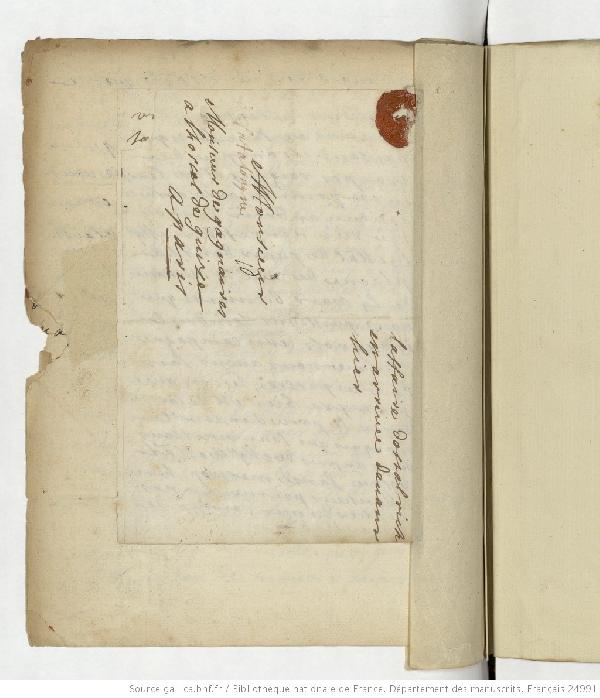 A Monsieur
Monsieur de gagnaires
a lhostel de guise
A paris
laffaire dostalrich
arrivee devant
hier
Source gallica.bnf.fr / Bibliothèque nationale de France. Département des manuscrits. Français 24991